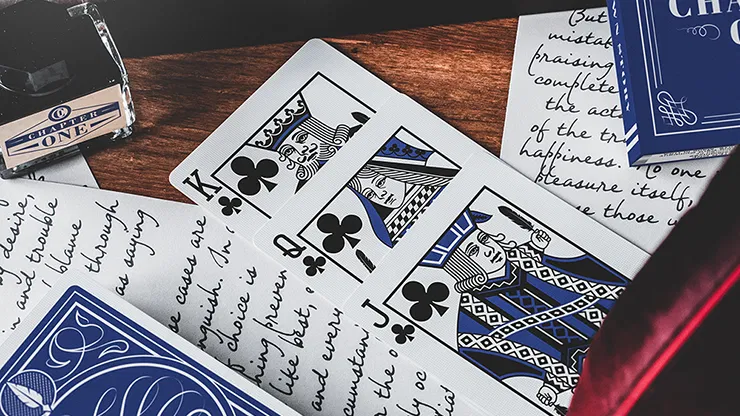 CHAPTER
ONE
K
Q
J
But
praising
complete
the act
of the tr
happiness. No one
pleasure itself,
those u
CHA
desire,
and trouble
blame
through
as saying
se cases are
nguish. In
choice is
hing preven
like best,
and every
cumstan
r the o
y oc